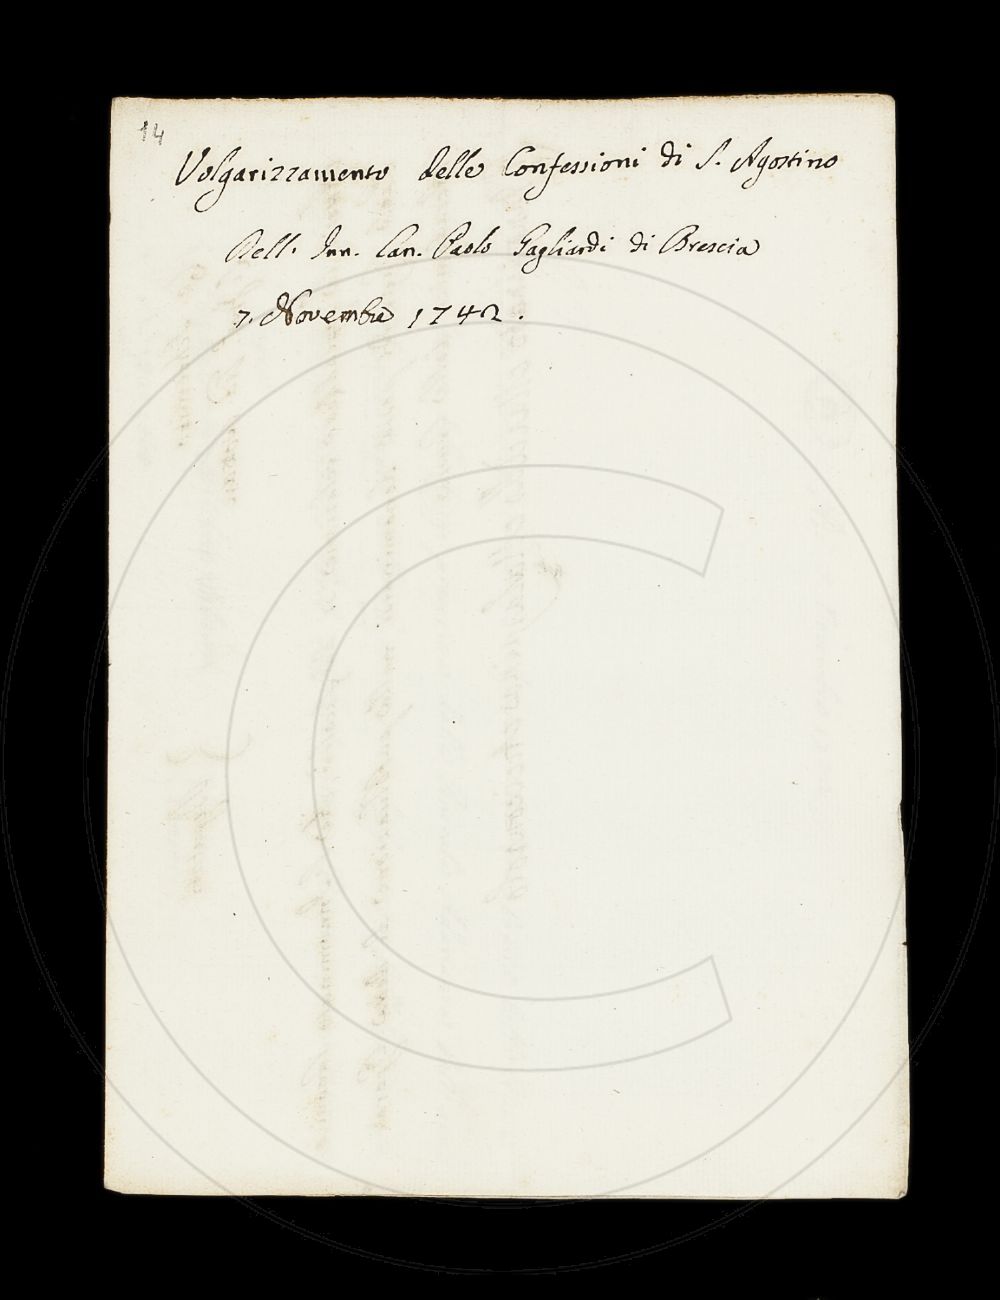 14
Volgarizzamento delle Confessioni di S. Agostino
Dell. Can. Paolo Gagliardi di Brescia
7. Novembre 1742.